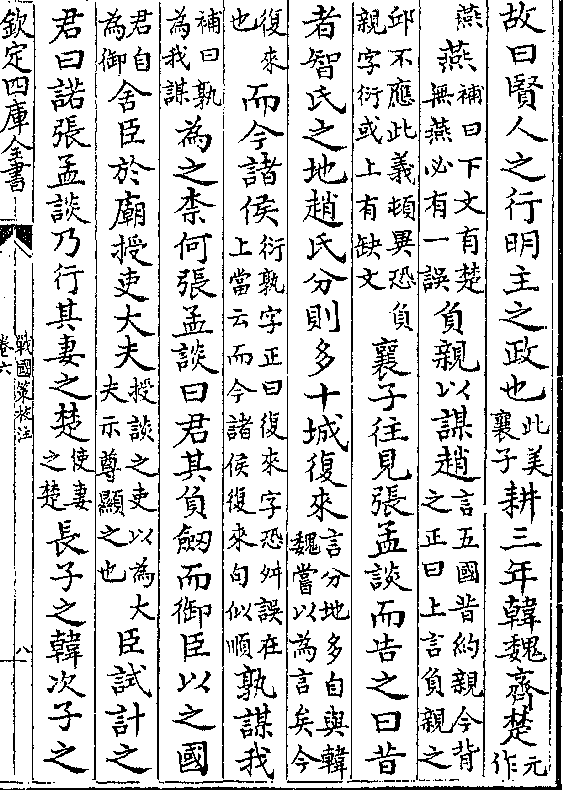 故曰賢人之行明主之政也此美襄子耕三年韓魏齊楚元作
燕燕補曰下文有楚無燕必有一誤負親以謀趙言五國昔約親今背之正曰上言負親之
邱不應此義頓異恐負親字衍或上有缺文襄子往見張孟談而告之曰昔
者智氏之地趙氏分則多十城復來言分地多自與韓魏嘗以為言矣今
復來也而今諸侯衍孰字正曰復來字恐舛誤在上當云而今諸侯復來句似順孰謀我
補曰孰為我謀為之柰何張孟談曰君其負劒而御臣以之國
君自為御舍臣於廟授吏大夫授談之吏以為大夫示尊顯之也臣試計之
君曰諾張孟談乃行其妻之楚使妻之楚長子之韓次子之
欽定四庫全書
戰國策校注
卷六
八